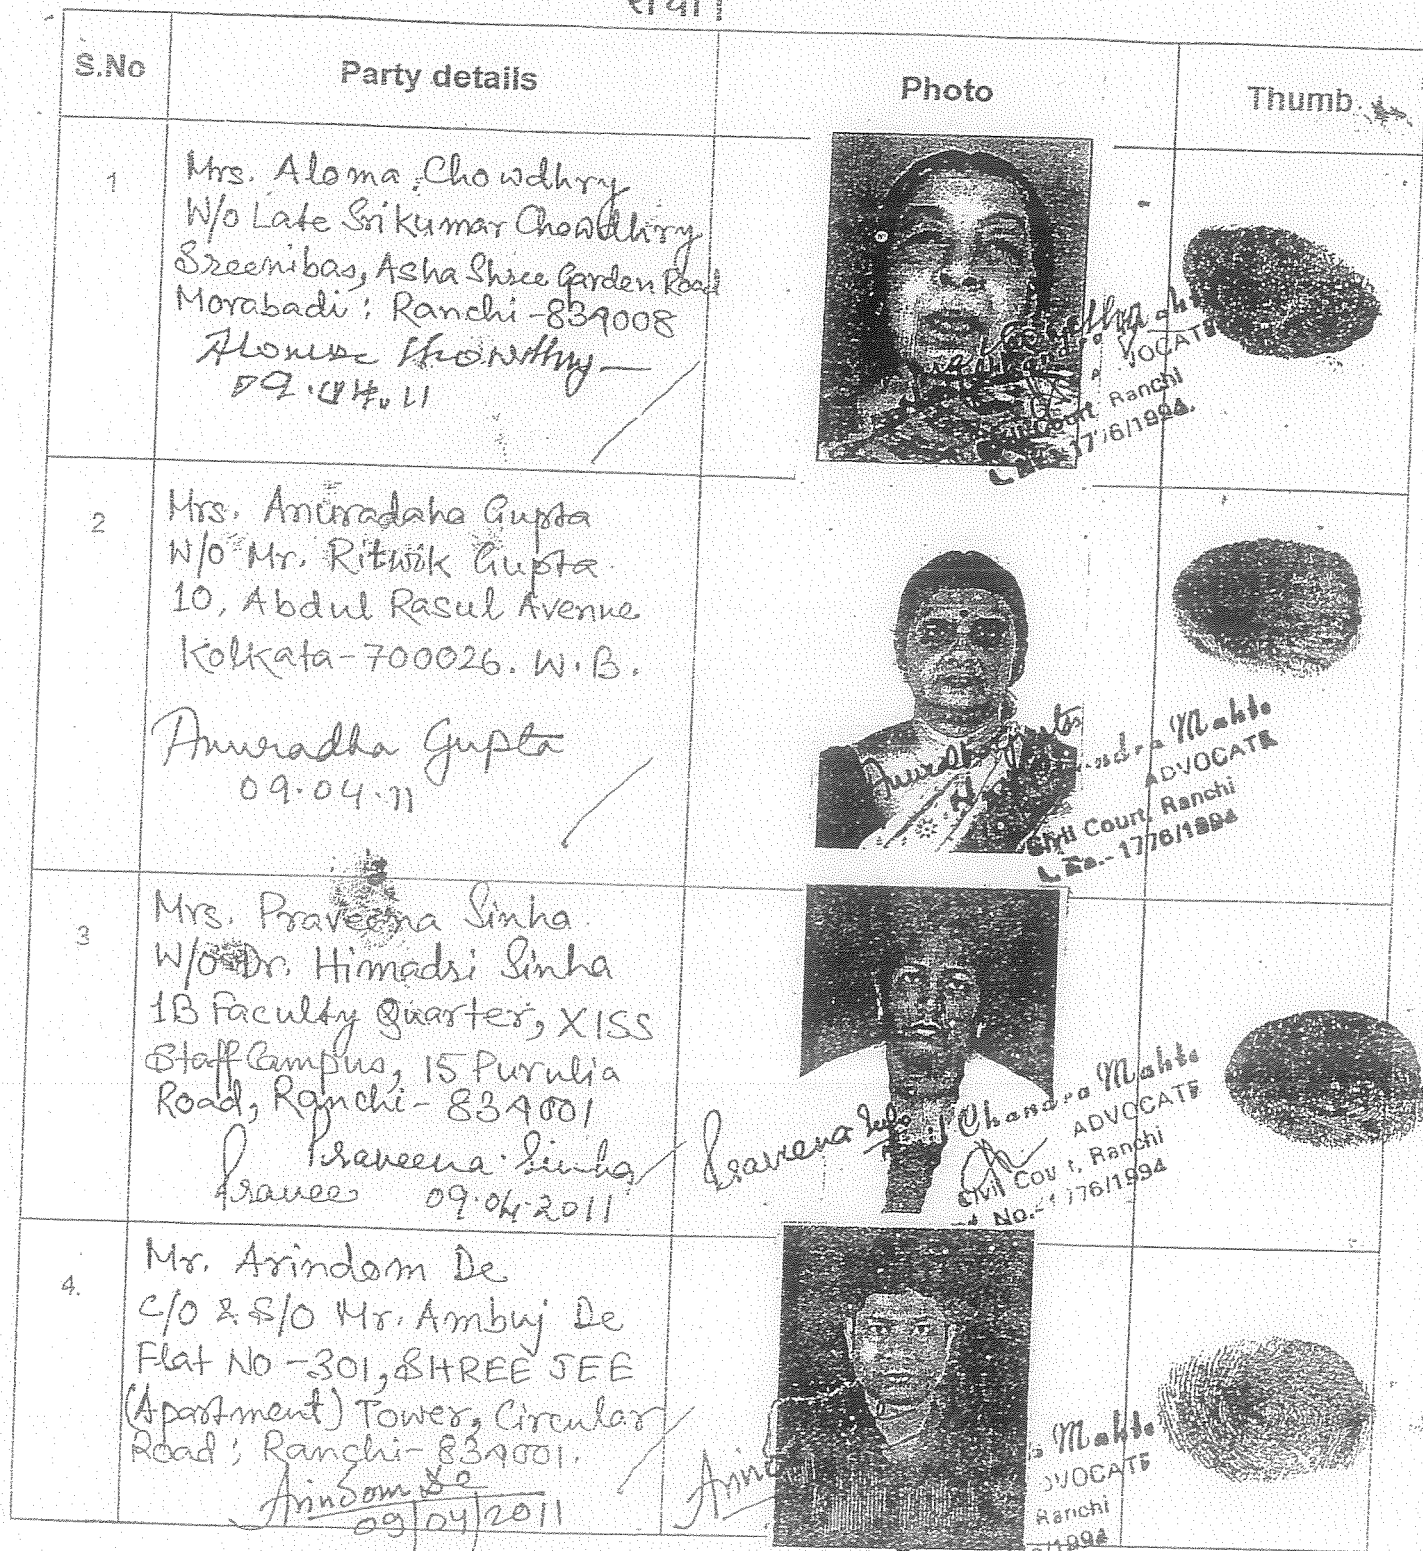 राँची
S.No Party details Photo Thumb
1
Mrs. Aloma Chowdhry
W/o Late Srikumar Chowdhry
Sreenibas, Asha Shree Garden Road
Morabadi : Ranchi-834008
Aloma Chowdhry
09.04.11
VOCATE
Civil Court, Ranchi
1776/1994.
2
Mrs. Anuradaha Gupta
W/o Mr. Ritwik Gupta
10, Abdul Rasul Avenue
Kolkata-700026. W.B.
Anuradha Gupta
09.04.11
Anuradha Gupta
ndra Mahto
ADVOCATE
Civil Court, Ranchi
1776/1994
3
Mrs. Praveena Sinha
W/o Dr. Himadri Sinha
1B Faculty Quarter, XISS
Staff Campus, 15 Purulia
Road, Ranchi-834001
Praveena Sinha
Pravee 09.04.2011
Praveena
Chandra Mahto
ADVOCATE
Civil Court, Ranchi
No.-1776/1994
4.
Mr. Arindom De
C/O & S/O Mr. Ambuj De
Flat No -301, SHREE JEE
(Apartment) Tower, Circular
Road ; Ranchi-834001.
Arindom De
09/04/2011
Arindo
Mahto
DVOCATE
Ranchi
/1994